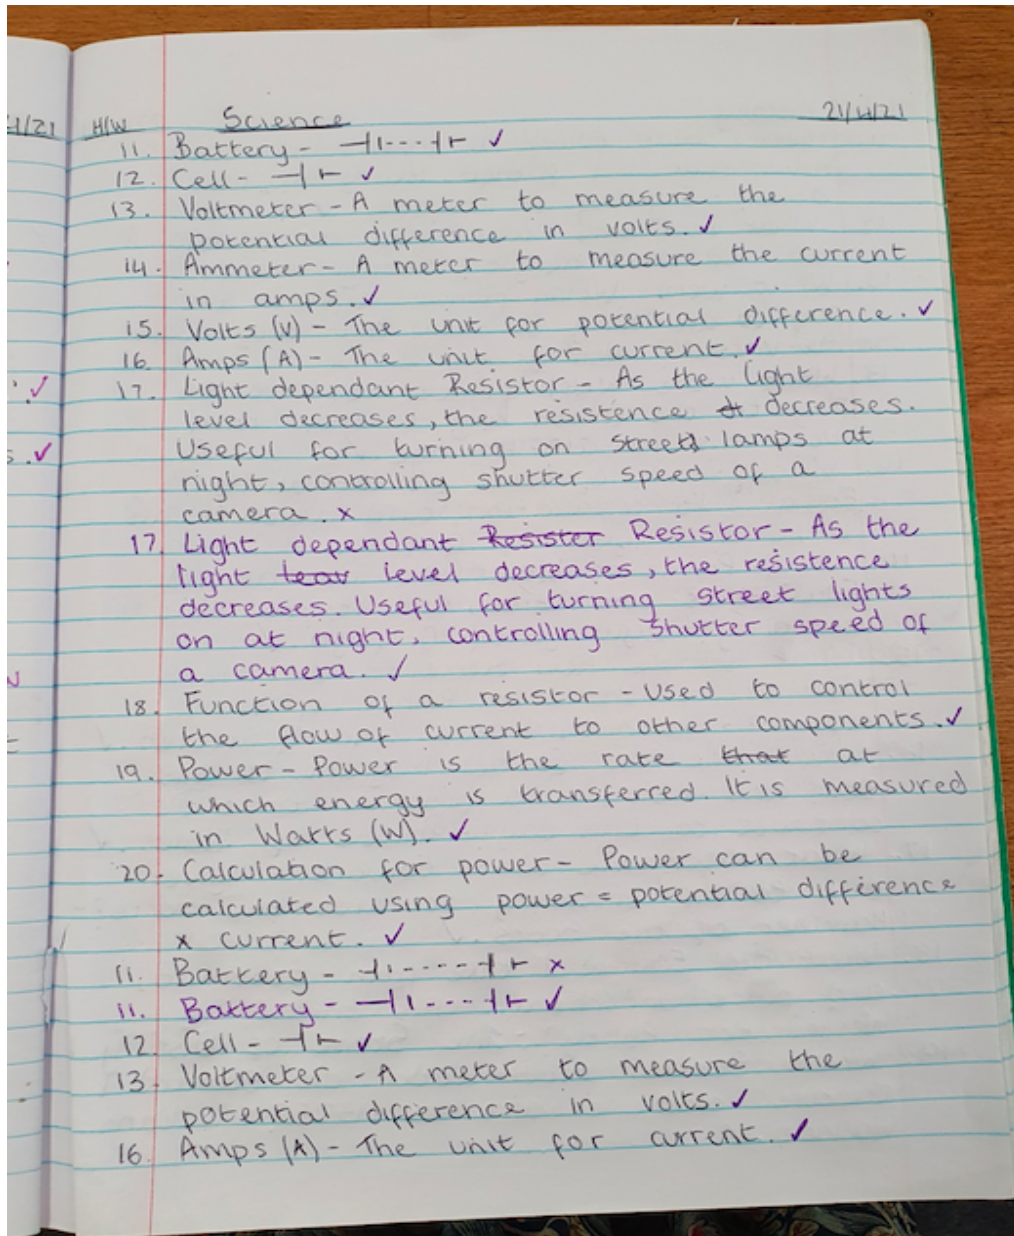 4/21
H/W Science 21/4/21
11. Battery - ✓
12. Cell - ✓
13. Voltmeter - A meter to measure the
potential difference in volts. ✓
14. Ammeter - A meter to measure the current
in amps. ✓
15. Volts (V) - The unit for potential difference. ✓
16. Amps (A) - The unit for current. ✓
17. Light dependant Resistor - As the light
level decreases, the resistence decreases.
Useful for turning on street lamps at
night, controlling shutter speed of a
camera. x
17 Light dependant Resister Resistor - As the
light level decreases, the resistence
decreases. Useful for turning street lights
on at night, controlling shutter speed of
a camera. ✓
18. Function of a resistor - Used to control
the flow of current to other components. ✓
19. Power - Power is the rate that at
which energy is transferred. It is measured
in Watts (W). ✓
20. Calculation for power - Power can be
calculated using power = potential difference
x current. ✓
11. Battery - x
11. Battery - ✓
12 Cell - ✓
13. Voltmeter - A meter to measure the
potential difference in volts. ✓
16. Amps (A) - The unit for current. ✓